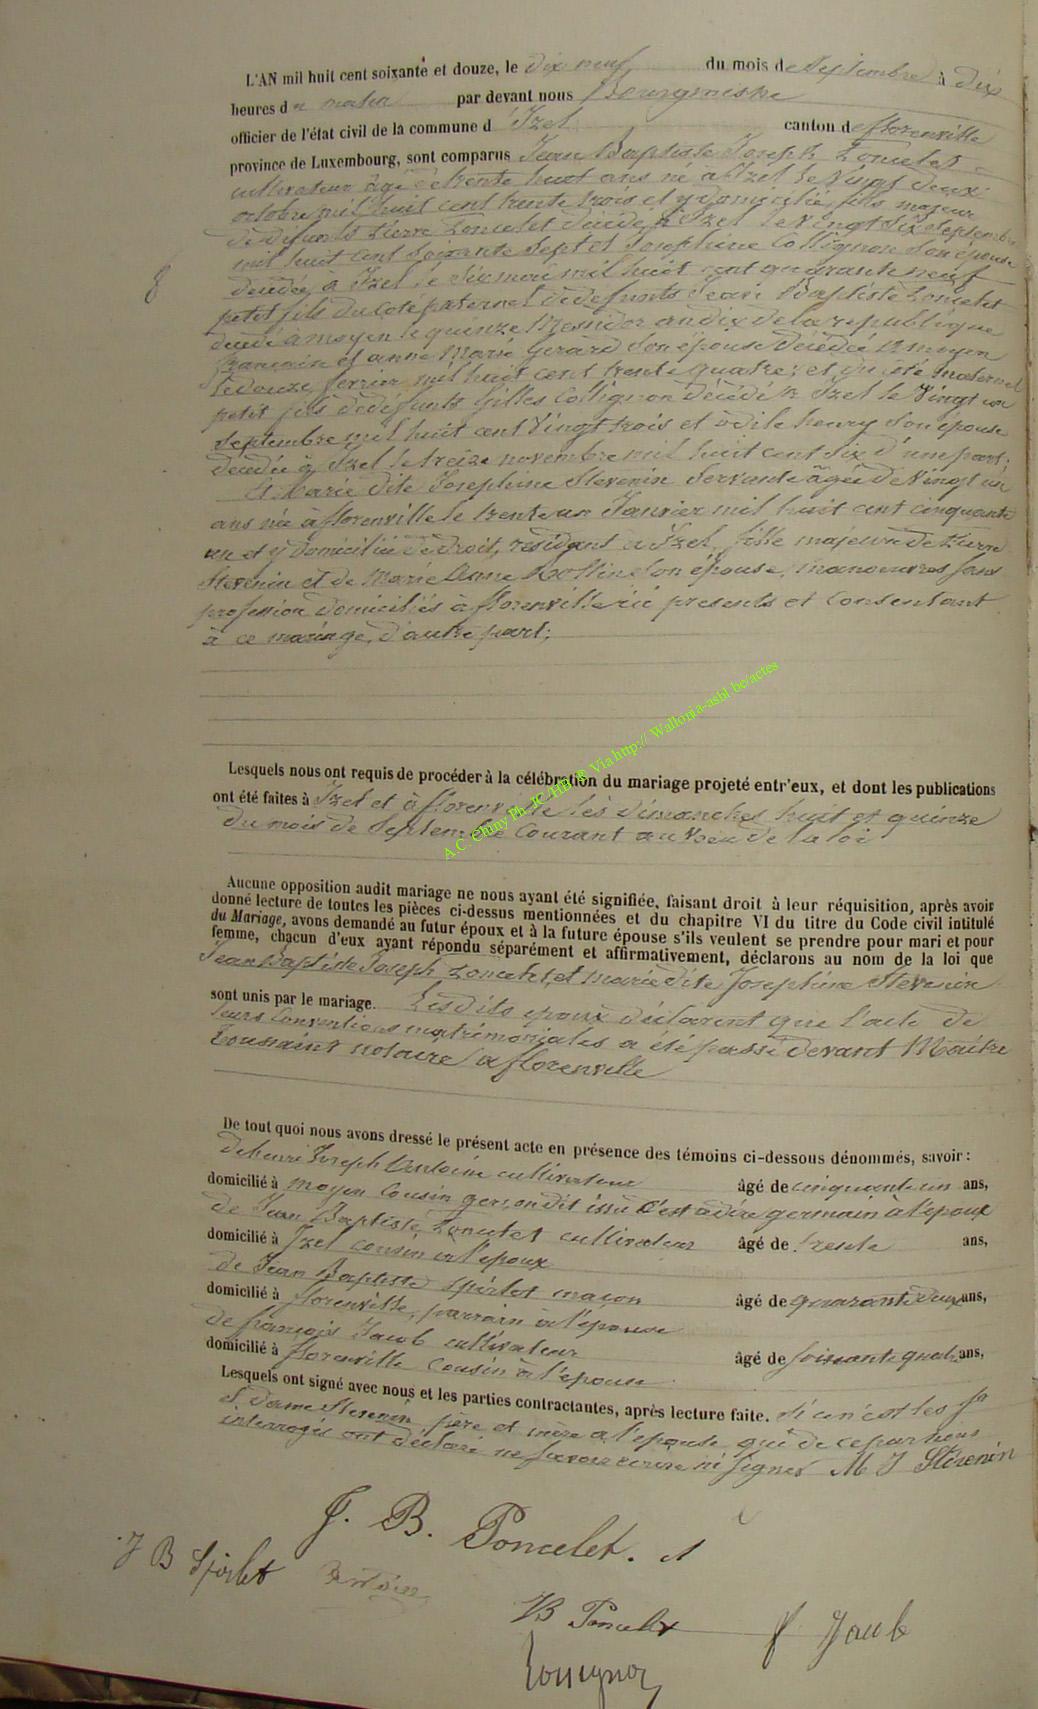 L'AN mil huit cent soixante et douze, le dix neuf du mois de Septembre à dix
heures du matin par devant nous Bourgmestre
officier de l'état civil de la commune d'Izel canton de florenville
province de Luxembourg, sont comparus Jean Baptiste Joseph Poncelet
cultivateur âgé de trente huit ans né à Izel le Vingt deux
octobre mil huit cent trente trois et y domicilié, fils majeur
de défunts Pierre Poncelet décédé à Izel le Vingt Six Septembre
mil huit cent Soixante Sept et Josephine Collignon Son épouse
décédée à Izel le Six mai mil huit cent quarante neuf
8
petit fils du coté paternel de défunts Jean Baptiste Poncelet
décédé à moyen le quinze Messidor an dix de la république
française et anne Marie Gerard Son épouse décédée à moyen
le douze fevrier mil huit cent trente quatre; et du coté maternel
petit fils de défunts Gilles Collignon décédé à Izel le Vingt un
Septembre mil huit cent Vingt trois et odile henry Son épouse
décédée à Izel le treize novembre mil huit cent Six d'une part;
Et Marie dite Josephine Stevenin Servante âgée de Vingt un
ans née à florenville le trente un Janvier mil huit cent cinquante
un et y domiciliée de droit, résidant à Izel, fille majeure de Pierre
Stevenin et de Marie Anne Rossin Son épouse, manoeuvres sans
profession domiciliés à florenville ici presents et Consentant
à ce mariage, d'autre part;
A.C. Chiny Ph. JC/HB/R Via http:// Wallonia-asbl.be/actes
Lesquels nous ont requis de procéder à la célébration du mariage projeté entr'eux, et dont les publications
ont été faites à Izel et à florenville les dimanches huit et quinze
du mois de Septembre Courant au Voeu de la loi
Aucune opposition audit mariage ne nous ayant été signifiée, faisant droit à leur réquisition, après avoir
donné lecture de toutes les pièces ci-dessus mentionnées et du chapitre VI du titre du Code civil intitulé
du Mariage, avons demandé au futur époux et à la future épouse s'ils veulent se prendre pour mari et pour
femme, chacun d'eux ayant répondu séparément et affirmativement, déclarons au nom de la loi que
Jean Baptiste Joseph Poncelet, et marie dite Josephine Stevenin
sont unis par le mariage. Lesdits époux déclarent que l'acte de
leurs Conventions matrémoniales a été passé devant Maître
Toussaint notaire à florenville
De tout quoi nous avons dressé le présent acte en présence des témoins ci-dessous dénommés, savoir:
de henri Joseph Antoine cultivateur âgé de cinquante un ans,
domicilié à moyen Cousin germain dit issu C'est à dire germain à l'époux
de Jean Baptiste Poncelet cultivateur âgé de trente ans,
domicilié à Izel cousin à l'époux
de Jean Baptiste Spirlet maçon âgé de quarante deux ans,
domicilié à florenville, parrain à l'épouse
de françois Jacob cultivateur âgé de soixante quatre ans,
domicilié à florenville Cousin à l'épouse
Lesquels ont signé avec nous et les parties contractantes, après lecture faite. Si ce n'est les Sr
et Dame Stevenin père et mère à l'épouse qui de ce par nous
interrogés ont déclaré ne savoir écrire ni signer M J Stévenin
J. B. Poncelet.
J B Spirlet Antoine
JB Poncelet f Jacob
Rossignon